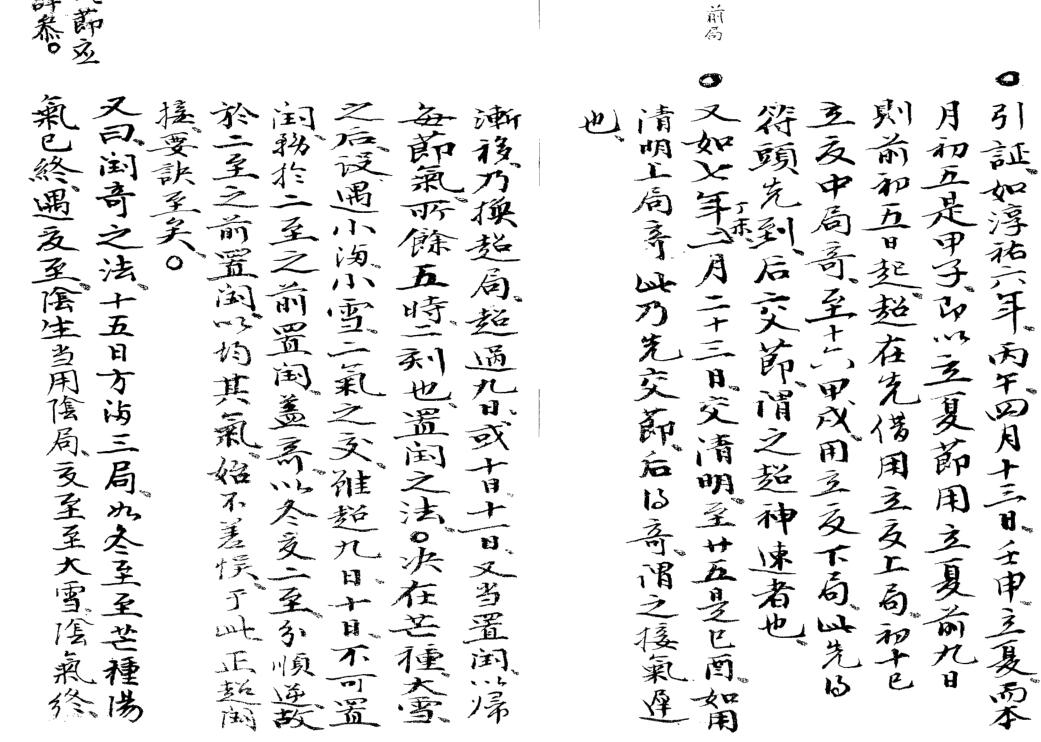 引証如淳祐六年丙午四月十三日壬申立夏而本
月初五是甲子即以立夏節用立夏前九日
則前初五日起超在先借用立夏上局初十己
立夏中局奇至十六甲戌用立夏下局此先得
符頭先到后交節謂之超神速者也
前局
又如七年丁未二月二十三日交清明至廿五是己酉如用
清明上局奇此乃先交節后得奇謂之接氣遲
也
漸移乃換超局超過九日或十日十一日又当置闰以归
每節氣所餘五時二刻也置闰之法決在芒種大雪
之后设遇小满小雪二氣之交雖超九日十日不可置
闰務於二至之前置闰蓋奇以冬夏二至分順逆故
於二至之前置闰以均其氣始不差悮于此正超闰
接要訣至矣
又曰闰奇之法十五日方满三局如冬至至芒種陽
氣已終遇夏至陰生当用陰局夏至至大雪陰氣終
節应
詳叅